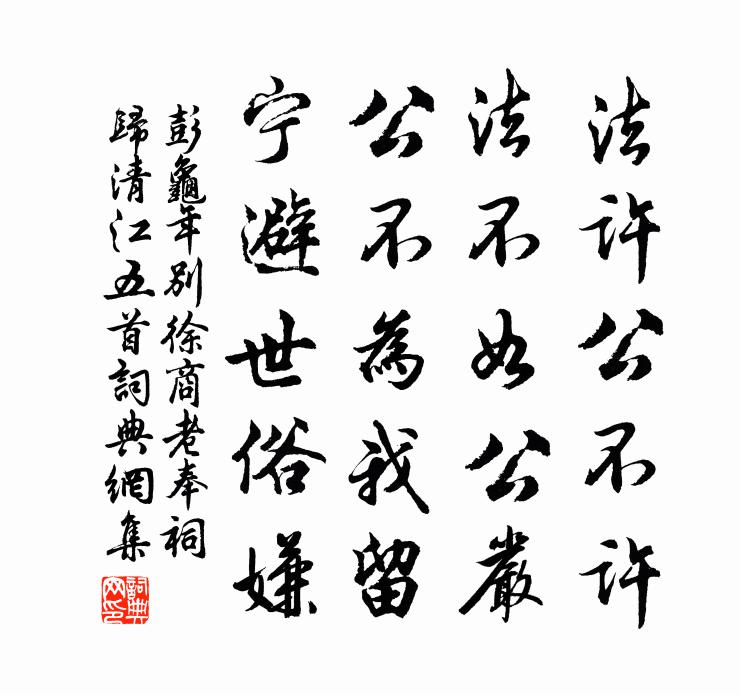 法許公不許
法不如公嚴
公不為我留
宁避世俗嫌
彭龜年別徐商老奉祠
歸清江五首詞典網集
詞典网印